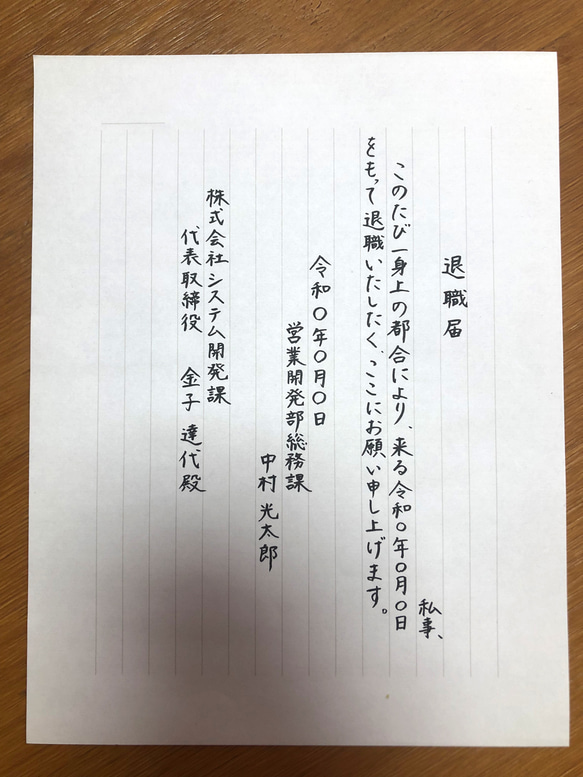 退職届
私事、
このたび一身上の都合により、来る令和〇年〇月〇日
をもって退職いたしたく、ここにお願い申し上げます。
令和〇年〇月〇日
営業開発部総務課
中村 光太郎
株式会社システム開発課
代表取締役 金子 達代殿